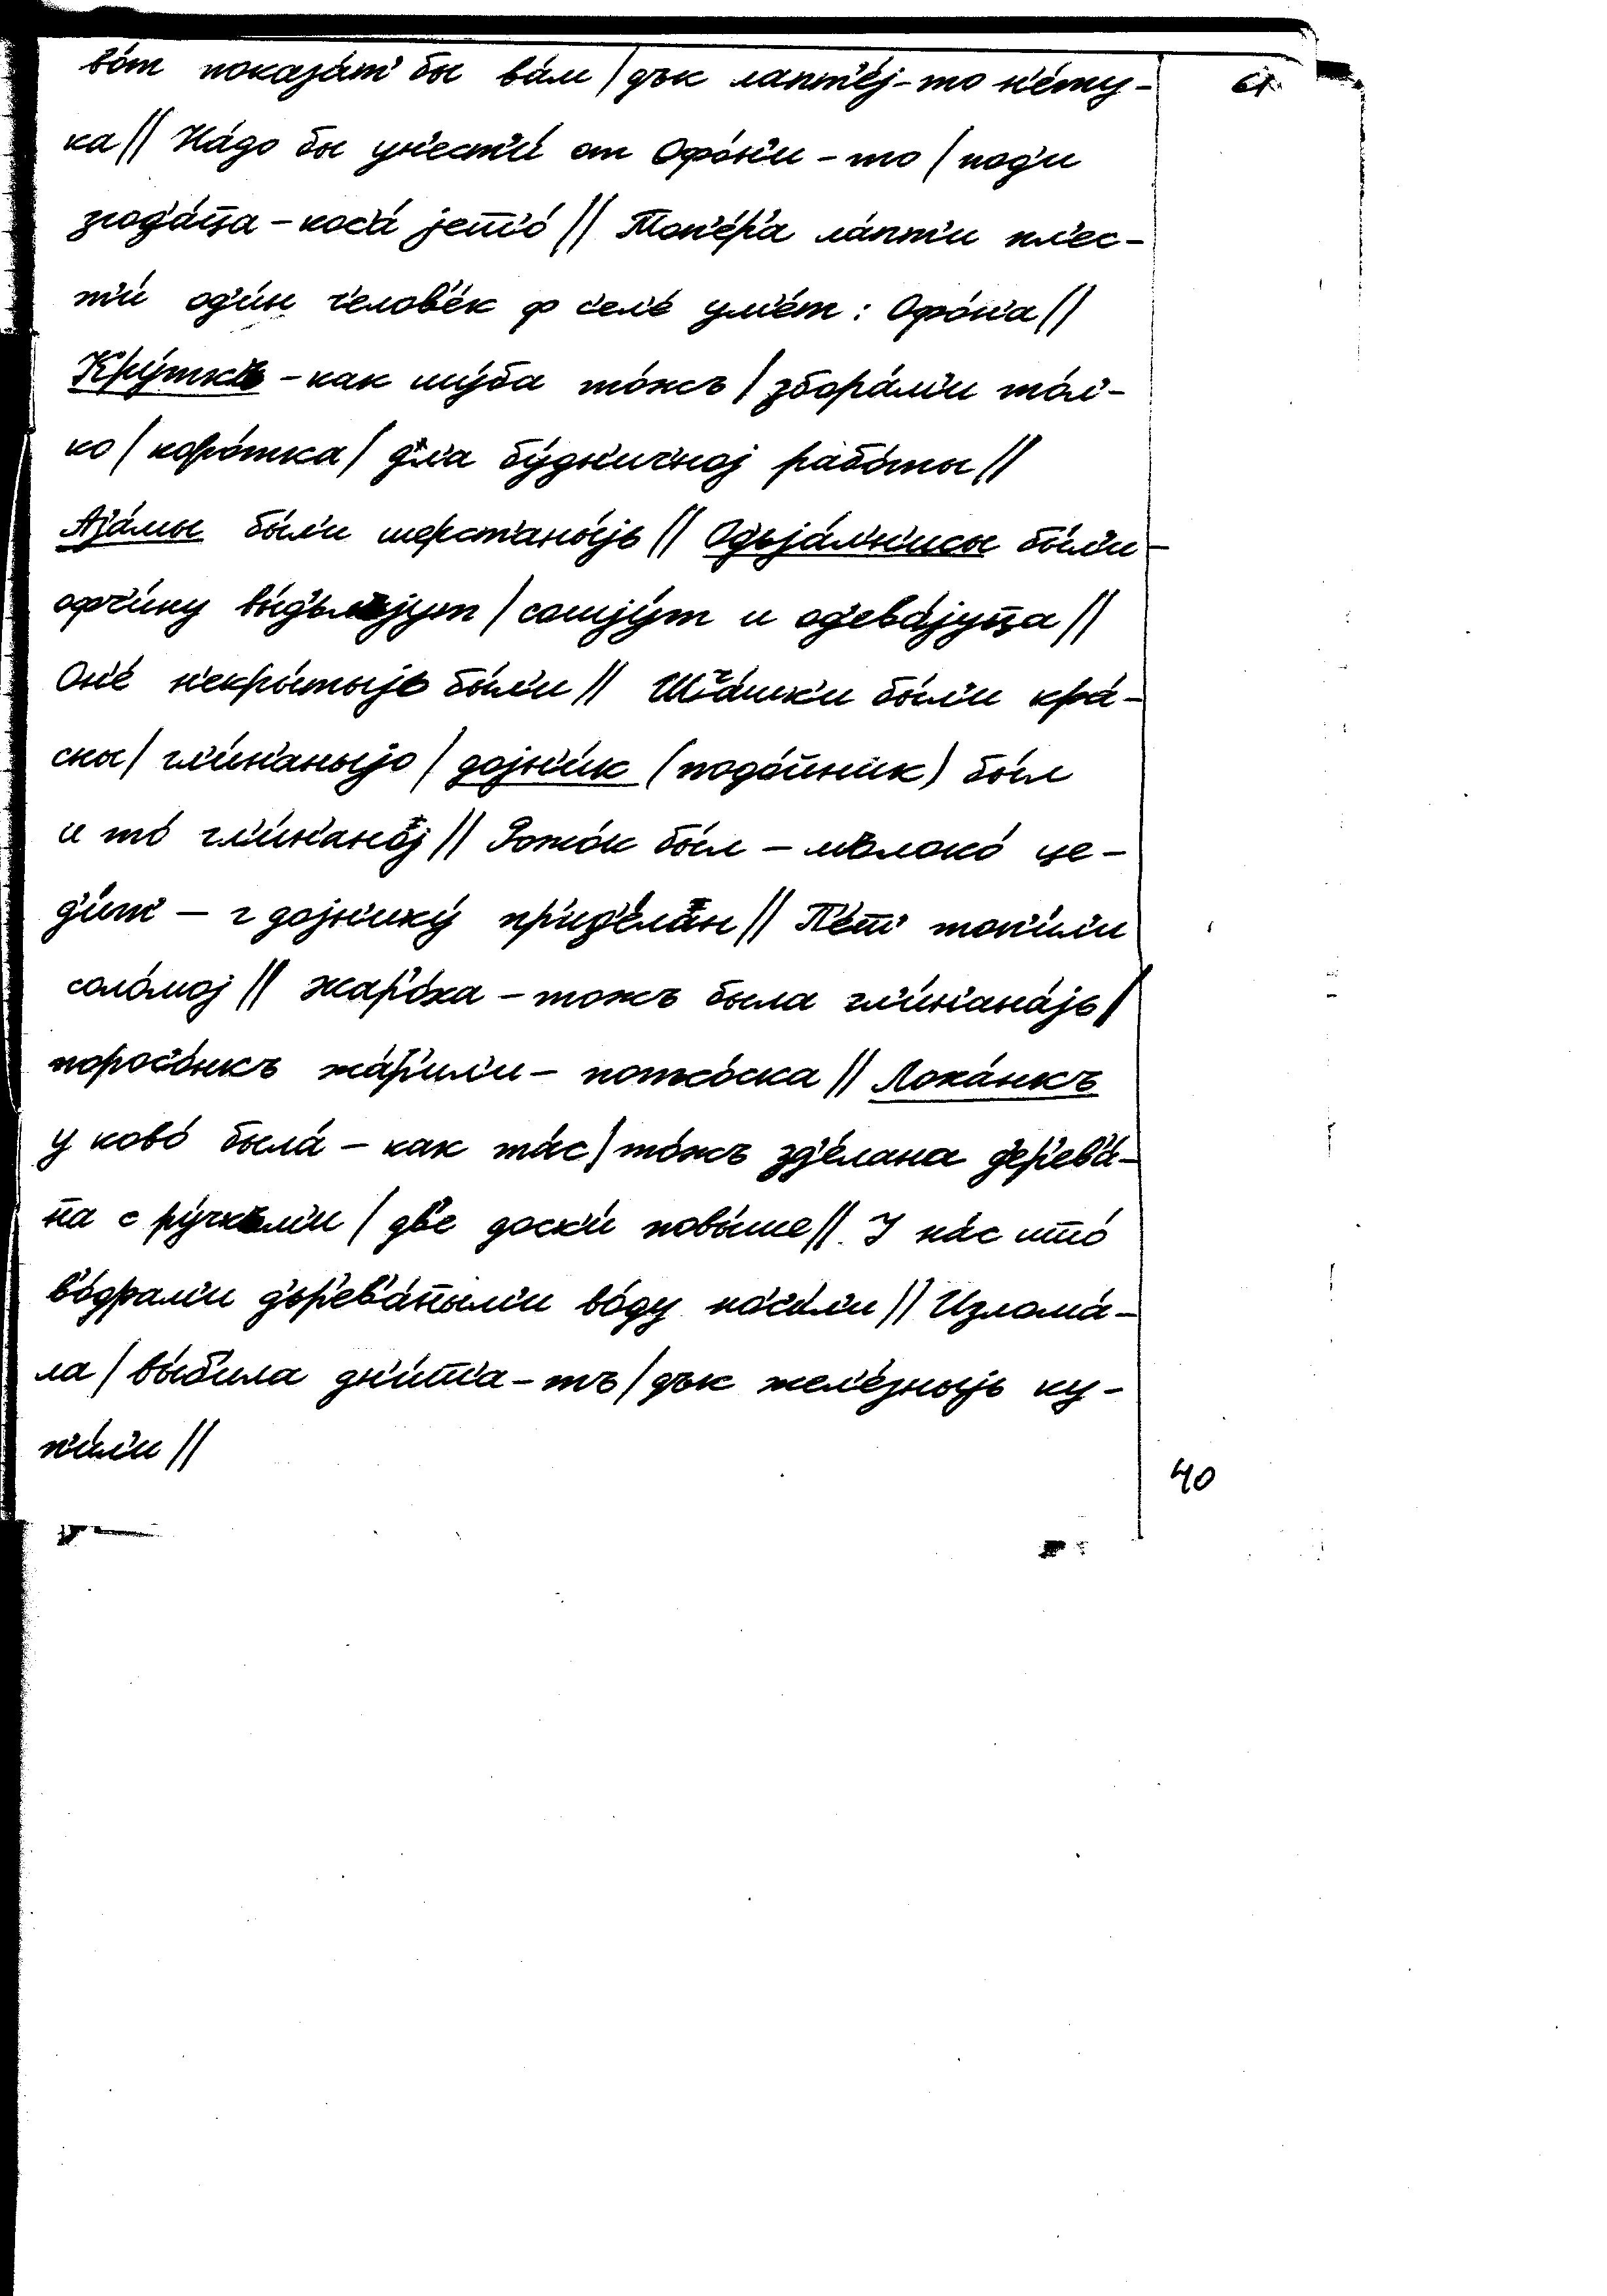 во́т показа́т' бы ва́м / дък лапт'е́j-то н'е́ту-
61
ка // На́до бы ун'ест'и́ от Офо́н'и-то / под'и
згод'а́ц̄а-кос'а́ jещ'о́ // Топ'е́р'а ла́пт'и пл'ес-
т'и́ од'и́н ч'елов'е́к ф с'ел'е́ ум'е́т : Офо́н'а //
Кру́ткъ - как шу́ба то́жъ / збора́м'и то́л'-
ко / коро́тка / дл'а бу́дн'ичноj рабо́ты //
Аз'а́мы бы́л'и шерст'аны́jь // Одъjа́л'н'ицы бы́л'и -
офч'и́ну вы́дълаjут / сошjу́т и од'ева́jуц̄а //
Он'е́ н'екры́тыjь бы́л'и // Ш'ч'а́шк'и бы́л'и кра́-
сны / гл'и́н'аныjо / доjн'и́к (подойник) бы́л
и то́ гл'и́н'аноj // Рожо́к бы́л - мълоко́ це-
д'и́т' - г доjн'ику́ пр'ид'е́лан // П'е́ч' топ'и́л'и
соло́моj // Жар'о́ха - тожъ была гл'и́н'ана́jь /
порос'о́нкъ жа́р'ил'и - потко́ска // Лоха́нкъ
у ково́ была́ - как та́с / то́жъ зд'е́лана д'ер'ев'а́-
н̄а с ру́чкъм'и / дв'е доск'и́ повы́ше // У на́с што́
в'о́драм'и д'ър'ев'а́н̄ым'и во́ду нос'и́л'и // Излома́-
ла / вы́б'ила дн'и́щ'а-тъ / дък жел'е́зныjь ку-
п'и́л'и //
40